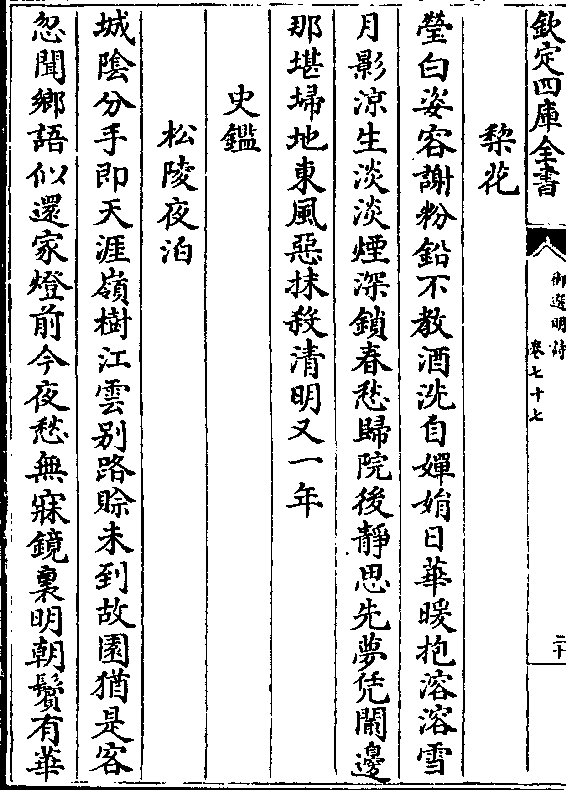 欽定四庫全書
御選明詩
卷七十七
二十
梨花
瑩白姿容謝粉鉛不教酒洗自嬋娟日華暖抱溶溶雪
月影涼生淡淡煙深鎖春愁歸院後靜思先夢凭闌邊
那堪埽地東風惡抹殺清明又一年
史鑑
松陵夜泊
城陰分手即天涯嶺樹江雲别路賒未到故園猶是客
忽聞鄉語似還家燈前今夜愁無寐鏡裏明朝鬢有華